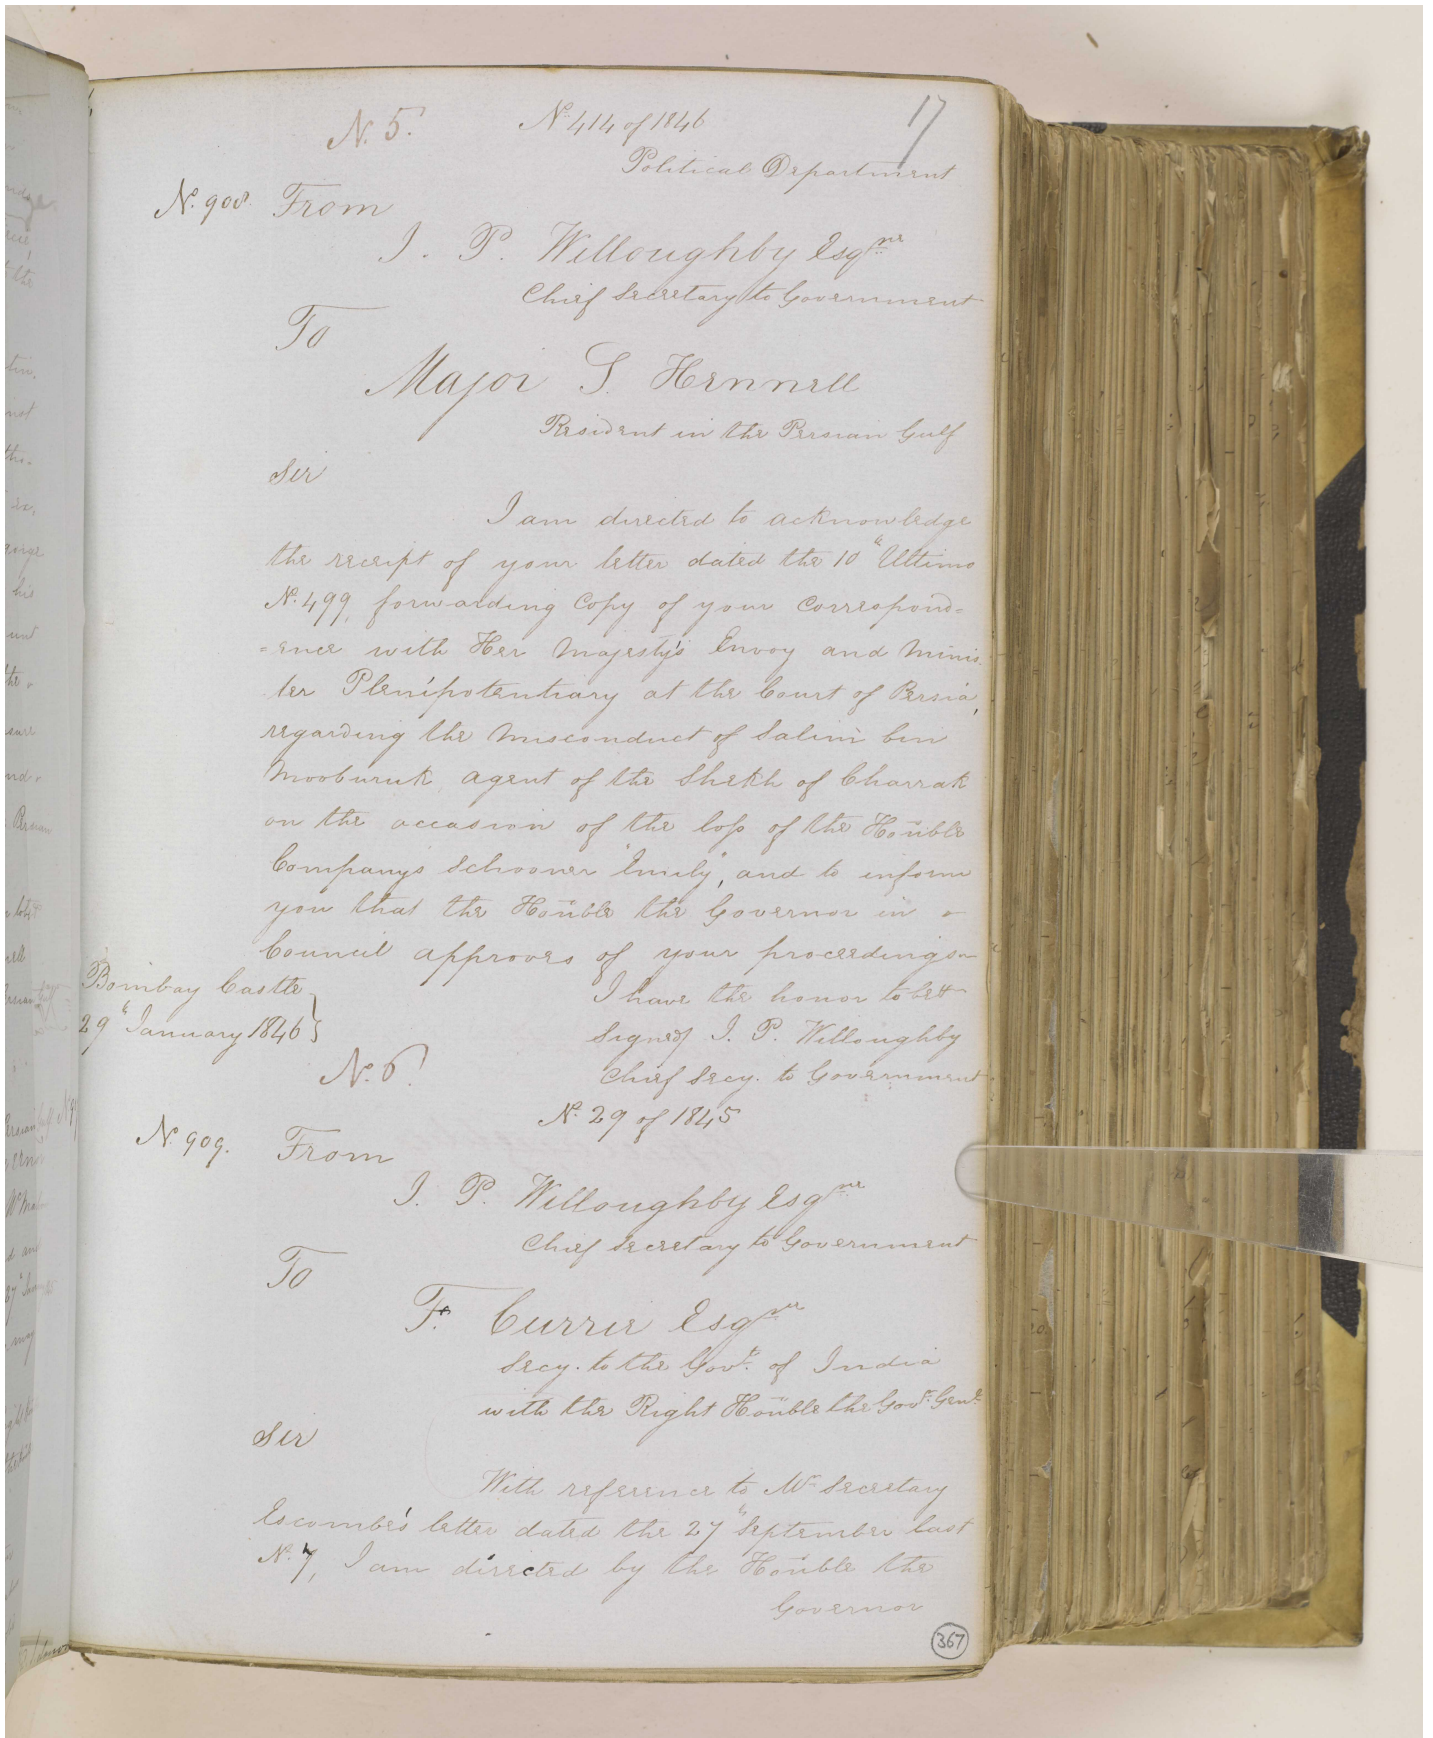 17
N. 5.
No. 414 of 1846
Political Department
N. 908. From
J. P. Willoughby Esqre
Chief Secretary to Government
To
Major S. Hennell
Resident in the Persian Gulf
Sir
I am directed to acknowledge
the receipt of your letter dated the 10th Ultimo
No. 499, forwarding Copy of your Correspond=
=ence with Her Majesty's Envoy and Minis
ter Plenipotentiary at the Court of Persia,
regarding the misconduct of Salim bin
Mooburuk, agent of the Shekh of Charrak
on the occasion of the loss of the Honble
Company's Schooner "Emily", and to inform
you that the Honble the Governor in
Council approves of your proceedings
Bombay Castle
29th January 1846
I have the honor to be &c
Signed J. P. Willoughby
Chief Secy. to Government
N. 6.
No. 29 of 1845
N. 909. From
J. P. Willoughby Esqre
Chief Secretary to Government
To
F. Currie Esqre
Secy. to the Govt. of India
with the Right Honble the Govr. Genl.
Sir
With reference to Mr Secretary
Escombe's letter dated the 27th September last
No. 7, I am directed by the Honble the
Governor
367